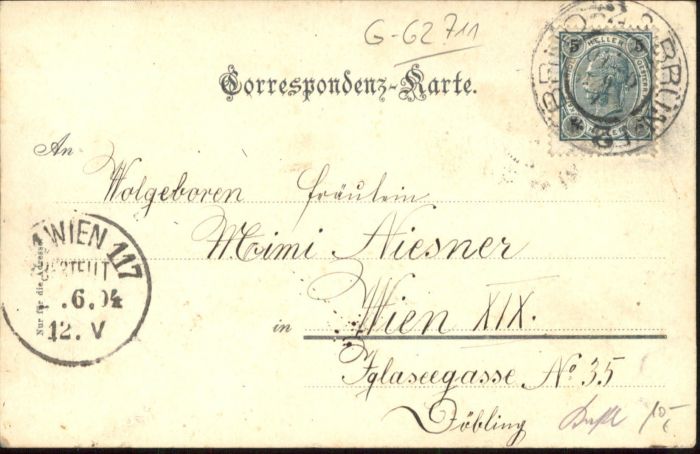 G-62711
Correspondenz-Karte.
5 HELLER 5
BRNO BRÜNN
An
Wolgeboren Fräulein
Mimi Niesner
in Wien XIX.
Iglaseegasse No 35
Döbling
WIEN 117
BESTELLT
.6.04
12. V
Nur für die Adresse
10-